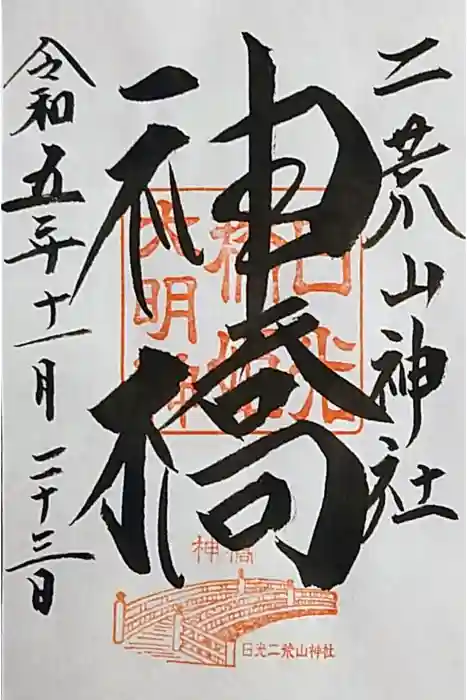 二荒山神社
神橋
令和五年十一月二十三日
日光
橋姫
大明神
神橋
日光二荒山神社